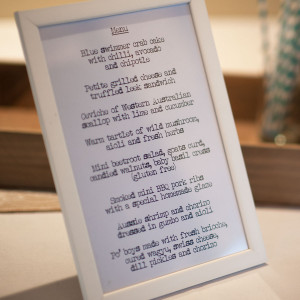 Menu
Blue swimmer crab cake
with chilli, avocado
and chipotle
Petite grilled cheese and
truffled leek sandwich
Ceviche of Western Australian
scallop with lime and cucumber
Warm tartlet of wild mushroom,
aioli and fresh herbs
Mini beetroot salad, goats curd,
candied walnuts, baby basil cress
(gluten free)
Smoked mini BBQ pork ribs
with a special homemade glaze
Aussie shrimp and chorizo
dressed in gumbo and aioli
Po' boys made with fresh brioche,
cured wagyu, swiss cheese,
dill pickles and chorizo